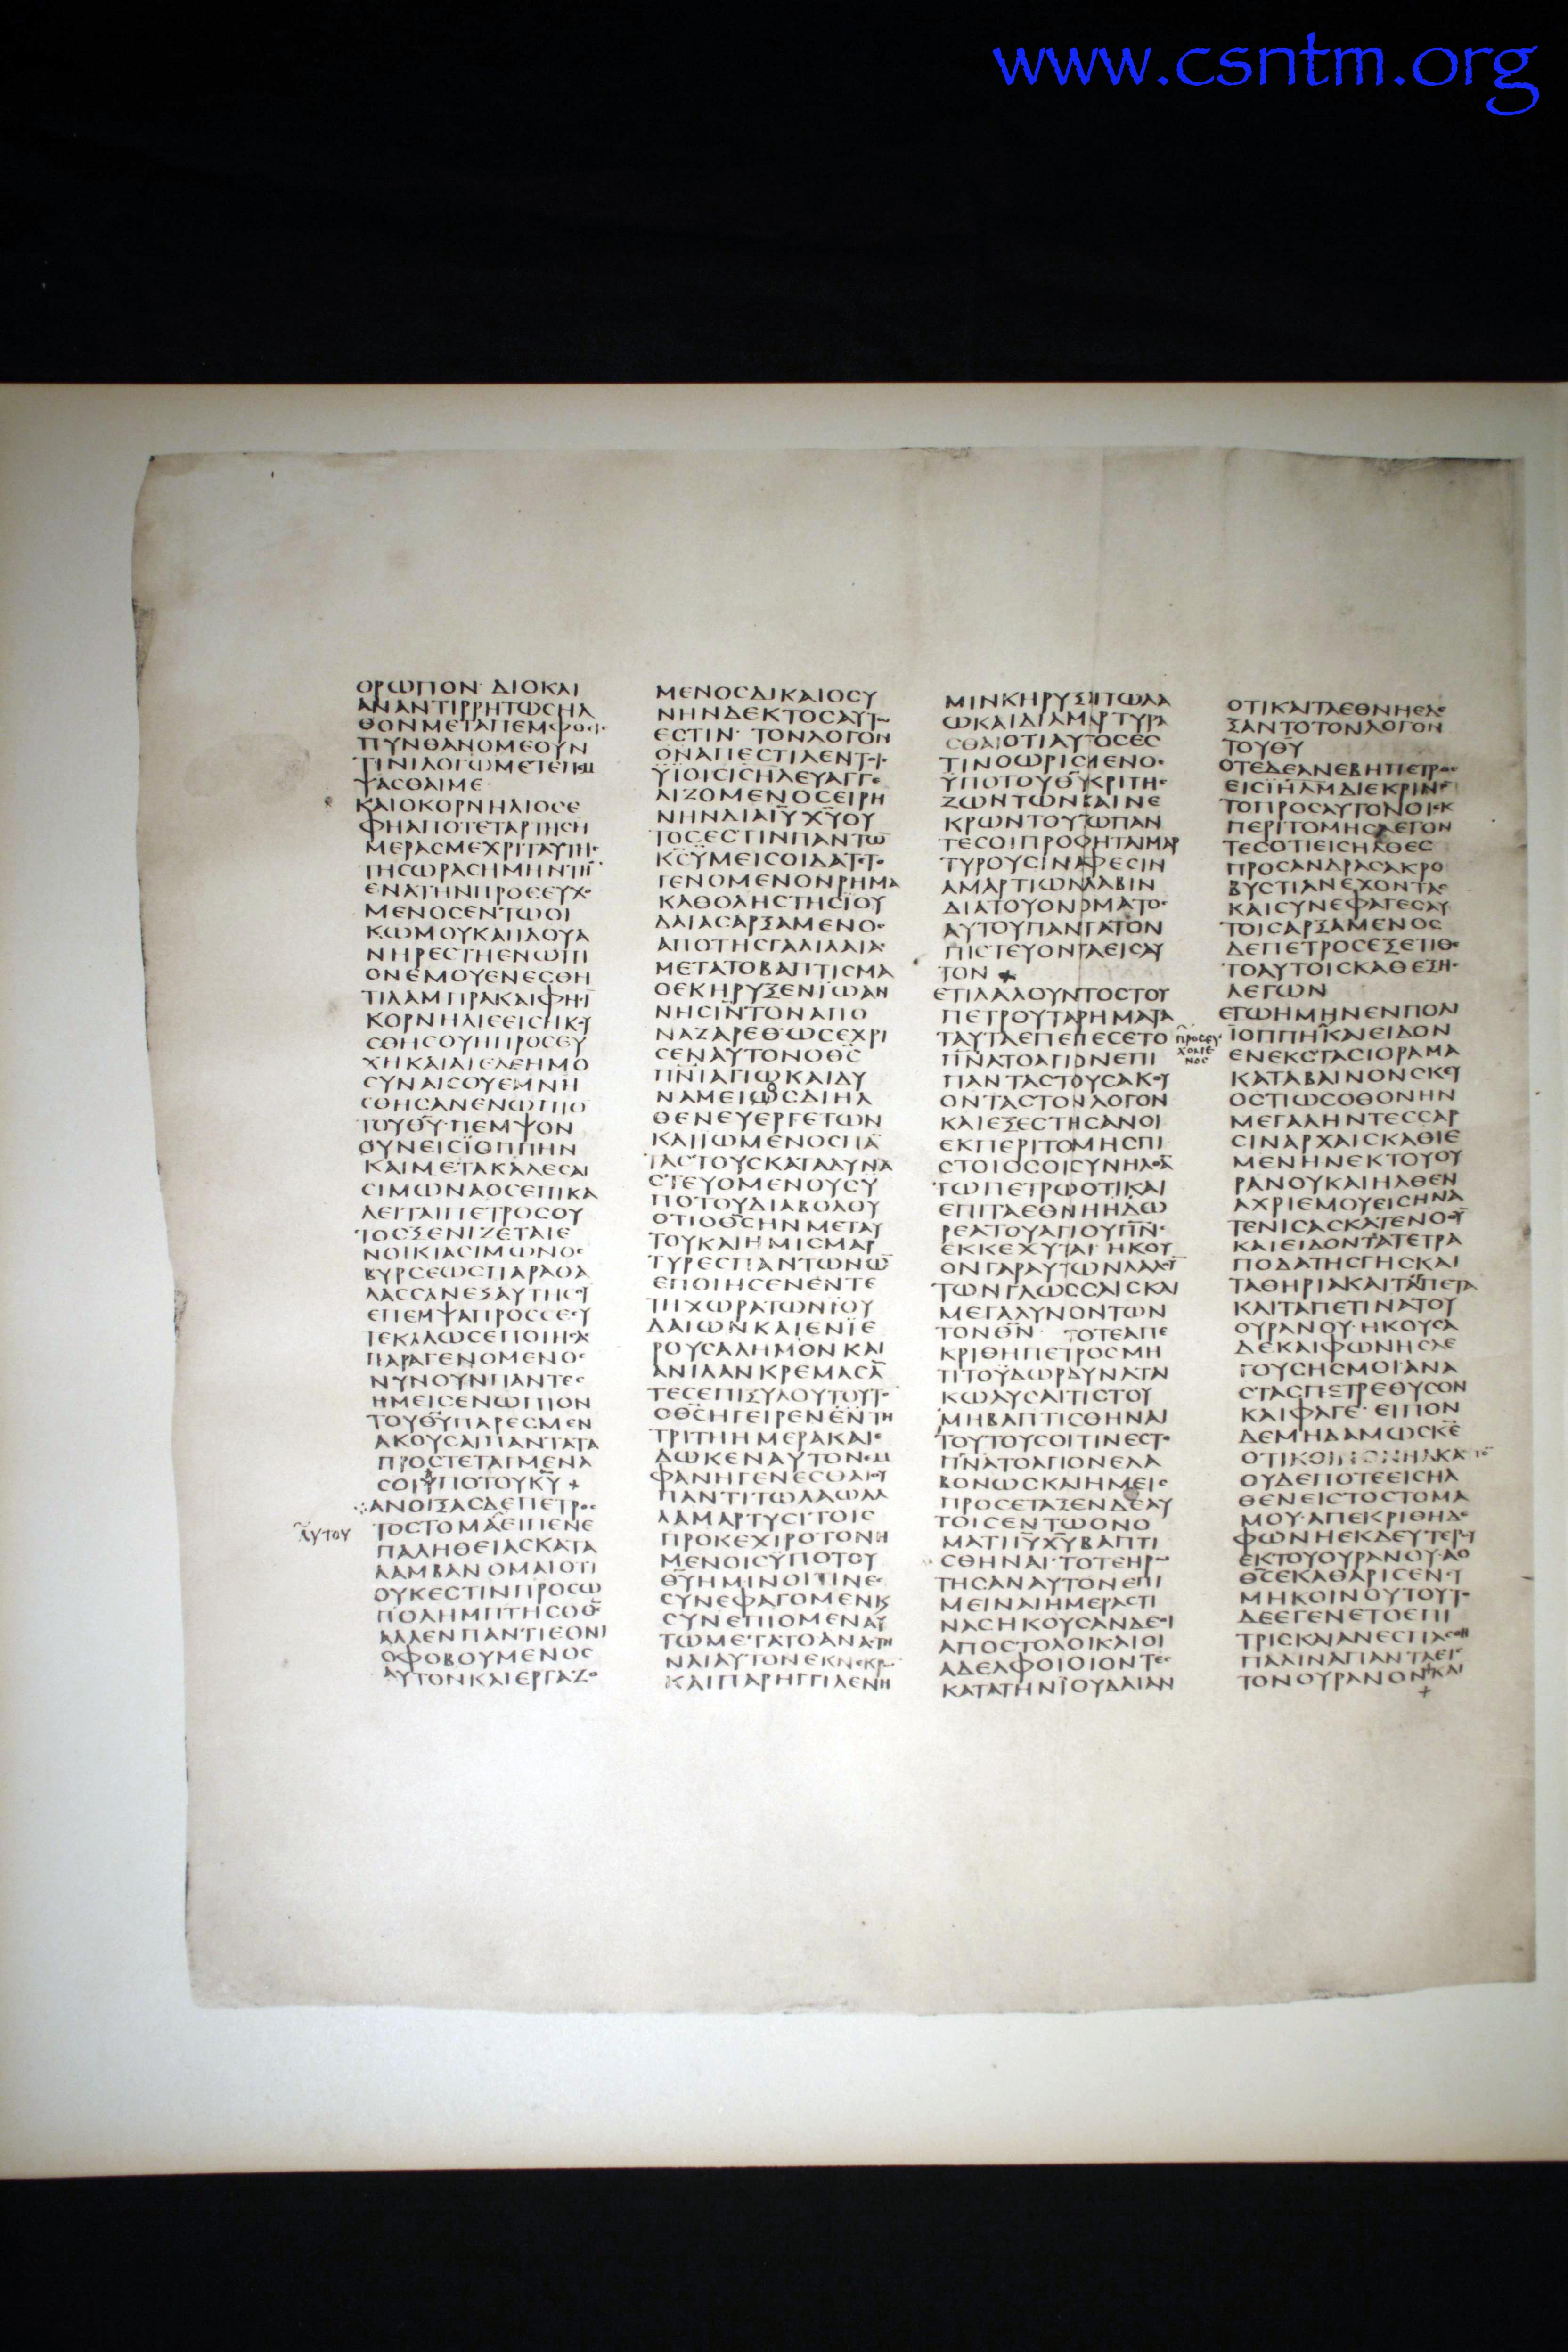 www.csntm.org
ΟΡΩΠΟΝ· ΔΙΟΚΑΙ
ΑΝΑΝΤΙΡΡΗΤΩCΗΛ
ΘΟΝΜΕΤΑΠΕΜΦΘΙC
ΠΥΝΘΑΝΟΜΕΟΥΝ
ΤΙΝΙΛΟΓΩΜΕΤΕΠΕΜ
ΨΑCΘΑΙΜΕ
ΚΑΙΟΚΟΡΝΗΛΙΟCΕ
ΦΗΑΠΟΤΕΤΑΡΤΗCΗ
ΜΕΡΑCΜΕΧΡΙΤΑΥΤΗC
ΤΗCΩΡΑCΗΜΗΝΤΗ̅
ΕΝΑΤΗΝΠΡΟCΕΥΧΟ
ΜΕΝΟCΕΝΤΩΟΙ
ΚΩΜΟΥΚΑΙΙΔΟΥΑ
ΝΗΡΕCΤΗΕΝΩΠΙ
ΟΝΕΜΟΥΕΝΕCΘΗ
ΤΙΛΑΜΠΡΑΚΑΙΦΗCΙ̅
ΚΟΡΝΗΛΙΕΕΙCΗΚΟΥ
CΘΗCΟΥΗΠΡΟCΕΥ
ΧΗΚΑΙΑΙΕΛΕΗΜΟ
CΥΝΑΙCΟΥΕΜΝΗ
CΘΗCΑΝΕΝΩΠΙΟ
ΤΟΥΘ̅Υ̅·ΠΕΜΨΟΝ
ΟΥΝΕΙCΪΟΠΠΗΝ
ΚΑΙΜΕΤΑΚΑΛΕCΑΙ
CΙΜΩΝΑΟCΕΠΙΚΑ
ΛΕΙΤΑΙΠΕΤΡΟCΟΥ
ΤΟCΞΕΝΙΖΕΤΑΙΕ
ΝΟΙΚΙΑCΙΜΩΝΟC
ΒΥΡCΕΩCΠΑΡΑΘΑ
ΛΑCCΑΝΕΞΑΥΤΗCΟΥ
ΕΠΕΜΨΑΠΡΟCCΕCΥ
ΤΕΚΑΛΩCΕΠΟΙΗCΑC
ΠΑΡΑΓΕΝΟΜΕΝΟC
ΝΥΝΟΥΝΠΑΝΤΕC
ΗΜΕΙCΕΝΩΠΙΟΝ
ΤΟΥΘ̅Υ̅ΠΑΡΕCΜΕΝ
ΑΚΟΥCΑΙΠΑΝΤΑΤΑ
ΠΡΟCΤΕΤΑΓΜΕΝΑ
CΟΙΫΠΟΤΟΥΚ̅Υ̅
ΑΝΟΙΞΑCΔΕΠΕΤΡΟC
ΤΟCΤΟΜΑΕΙΠΕΝΕ
αυτου
ΠΑΛΗΘΕΙΑCΚΑΤΑ
ΛΑΜΒΑΝΟΜΑΙΟΤΙ
ΟΥΚΕCΤΙΝΠΡΟCΩ
ΠΟΛΗΜΠΤΗCΟΘ̅C̅
ΑΛΛΕΝΠΑΝΤΙΕΘΝΙ
ΟΦΟΒΟΥΜΕΝΟC
ΑΥΤΟΝΚΑΙΕΡΓΑΖΟ
ΜΕΝΟCΔΙΚΑΙΟCΥ
ΝΗΝΔΕΚΤΟCΑΥΤΩ
ΕCΤΙΝ· ΤΟΝΛΟΓΟΝ
ΟΝΑΠΕCΤΙΛΕΝΤΟΙC
ΫΙΟΙCΙC̅Η̅Λ̅ΕΥΑΓΓΕ
ΛΙΖΟΜΕΝΟCΕΙΡΗ
ΝΗΝΔΙΑΙ̅Υ̅Χ̅Υ̅ΟΥ
ΤΟCΕCΤΙΝΠΑΝΤΩ̅
Κ̅C̅ΫΜΕΙCΟΙΔΑΤΕΤΟ
ΓΕΝΟΜΕΝΟΝΡΗΜΑ
ΚΑΘΟΛΗCΤΗCΙΟΥ
ΔΑΙΑCΑΡΞΑΜΕΝΟC
ΑΠΟΤΗCΓΑΛΙΛΑΙΑC
ΜΕΤΑΤΟΒΑΠΤΙCΜΑ
ΟΕΚΗΡΥΞΕΝΙΩΑΝ
ΝΗCΙΝΤΟΝΑΠΟ
ΝΑΖΑΡΕΘ·ΩCΕΧΡΙ
CΕΝΑΥΤΟΝΟΘ̅C̅
Π̅Ν̅Ι̅ΑΓΙΩΚΑΙΔΥ
ΝΑΜΕΙΩCΔΙΗΛ
ΘΕΝΕΥΕΡΓΕΤΩΝ
ΚΑΙΪΩΜΕΝΟCΠΑ̅
ΤΑCΤΟΥCΚΑΤΑΔΥΝΑ
CΤΕΥΟΜΕΝΟΥCΥ
ΠΟΤΟΥΔΙΑΒΟΛΟΥ
ΟΤΙΟΘ̅C̅ΗΝΜΕΤΑΥ
ΤΟΥΚΑΙΗΜΙCΜΑΡ
ΤΥΡΕCΠΑΝΤΩΝΩ̅
ΕΠΟΙΗCΕΝΕΝΤΕ
ΤΗΧΩΡΑΤΩΝΪΟΥ
ΔΑΙΩΝΚΑΙΕΝΪΕ
ΡΟΥCΑΛΗΜΟΝΚΑΙ
ΑΝΙΛΑΝΚΡΕΜΑCΑ̅
ΤΕCΕΠΙΞΥΛΟΥΤΟΥΤΟ
ΟΘ̅C̅ΗΓΕΙΡΕΝΕΝΤΗ
ΤΡΙΤΗΗΜΕΡΑΚΑΙΕ
ΔΩΚΕΝΑΥΤΟΝΕΜ
ΦΑΝΗΓΕΝΕCΘΑΙΟΥ
ΠΑΝΤΙΤΩΛΑΩΑΛ
ΛΑΜΑΡΤΥCΙΤΟΙC
ΠΡΟΚΕΧΙΡΟΤΟΝΗ
ΜΕΝΟΙCΫΠΟΤΟΥ
Θ̅Υ̅ΗΜΙΝΟΙΤΙΝΕC
CΥΝΕΦΑΓΟΜΕΝΚ
CΥΝΕΠΙΟΜΕΝΑΥ
ΤΩΜΕΤΑΤΟΑΝΑCΤΗ
ΝΑΙΑΥΤΟΝΕΚΝΕΚΡΩ
ΚΑΙΠΑΡΗΓΓΙΛΕΝΗ
ΜΙΝΚΗΡΥΞΕΤΩΛΑ
ΩΚΑΙΔΙΑΜΑΡΤΥΡΑ
CΘΑΙΟΤΙΑΥΤΟCΕC
ΤΙΝΟΩΡΙCΜΕΝΟC
ΫΠΟΤΟΥΘ̅Υ̅ΚΡΙΤΗC
ΖΩΝΤΩΝΚΑΙΝΕ
ΚΡΩΝΤΟΥΤΩΠΑΝ
ΤΕCΟΙΠΡΟΦΗΤΑΙΜΑΡ
ΤΥΡΟΥCΙΝΑΦΕCΙΝ
ΑΜΑΡΤΙΩΝΛΑΒΙΝ
ΔΙΑΤΟΥΟΝΟΜΑΤΟC
ΑΥΤΟΥΠΑΝΤΑΤΟΝ
ΠΙCΤΕΥΟΝΤΑΕΙCΑΥ
ΤΟΝ
ΕΤΙΛΑΛΟΥΝΤΟCΤΟΥ
ΠΕΤΡΟΥΤΑΡΗΜΑΤΑ
ΤΑΥΤΑΕΠΕΠΕCΕΤΟ
Π̅Ν̅ΑΤΟΑΓΙΟΝΕΠΙ
ΠΑΝΤΑCΤΟΥCΑΚΟΥ
ΟΝΤΑCΤΟΝΛΟΓΟΝ
ΚΑΙΕΞΕCΤΗCΑΝΟΙ
ΕΚΠΕΡΙΤΟΜΗCΠΙ
CΤΟΙΟCΟΙCΥΝΗΛΘΑ̅
ΤΩΠΕΤΡΩΟΤΙΚΑΙ
ΕΠΙΤΑΕΘΝΗΗΔΩ
ΡΕΑΤΟΥΑΓΙΟΥΠ̅Ν̅C̅
ΕΚΚΕΧΥΤΑΙ ΗΚΟΥ
ΟΝΓΑΡΑΥΤΩΝΛΑΛΟΥ̅
ΤΩΝΓΛΩCCΑΙCΚΑΙ
ΜΕΓΑΛΥΝΟΝΤΩΝ
ΤΟΝΘ̅Ν̅· ΤΟΤΕΑΠΕ
ΚΡΙΘΗΠΕΤΡΟCΜΗ
ΤΙΤΟΫΔΩΡΔΥΝΑΤΑΙ
ΚΩΛΥCΑΙΤΙCΤΟΥ
ΜΗΒΑΠΤΙCΘΗΝΑΙ
ΤΟΥΤΟΥCΟΙΤΙΝΕCΤΟ
Π̅Ν̅ΑΤΟΑΓΙΟΝΕΛΑ
ΒΟΝΩCΚΑΙΗΜΕΙC
ΠΡΟCΕΤΑΞΕΝΔΕΑΥ
ΤΟΙCΕΝΤΩΟΝΟ
ΜΑΤΙΙ̅Υ̅Χ̅Υ̅ΒΑΠΤΙ
CΘΗΝΑΙ·ΤΟΤΕΗΡΩ
ΤΗCΑΝΑΥΤΟΝΕΠΙ
ΜΕΙΝΑΙΗΜΕΡΑCΤΙ
ΝΑCΗΚΟΥCΑΝΔΕΟΙ
ΑΠΟCΤΟΛΟΙΚΑΙΟΙ
ΑΔΕΛΦΟΙΟΙΟΝΤΕC
ΚΑΤΑΤΗΝΪΟΥΔΑΙΑΝ
ΟΤΙΚΑΙΤΑΕΘΝΗΕΔΕ
ΞΑΝΤΟΤΟΝΛΟΓΟΝ
ΤΟΥΘΥ
ΟΤΕΔΕΑΝΕΒΗΠΕΤΡΟC
ΕΙCΪ̅Η̅Λ̅Μ̅ΔΙΕΚΡΙΝΟ
ΤΟΠΡΟCΑΥΤΟΝΟΙΕΚ
ΠΕΡΙΤΟΜΗCΛΕΓΟΝ
ΤΕCΟΤΙΕΙCΗΛΘΕC
ΠΡΟCΑΝΔΡΑCΑΚΡΟ
ΒΥCΤΙΑΝΕΧΟΝΤΑC
ΚΑΙCΥΝΕΦΑΓΕCΑΥ
ΤΟΙCΑΡΞΑΜΕΝΟC
ΔΕΠΕΤΡΟCΕΞΕΤΙΘΕ
ΤΟΑΥΤΟΙCΚΑΘΕΞΗC
ΛΕΓΩΝ
ΕΓΩΗΜΗΝΕΝΠΟΛΙ
ΪΟΠΠΗΚΑΙΕΙΔΟΝ
προσευ
χομε
νος
ΕΝΕΚCΤΑCΙΟΡΑΜΑ
ΚΑΤΑΒΑΙΝΟΝCΚΕΥ
ΟCΤΙΩCΟΘΟΝΗΝ
ΜΕΓΑΛΗΝΤΕCCΑΡ
CΙΝΑΡΧΑΙCΚΑΘΙΕ
ΜΕΝΗΝΕΚΤΟΥΟΥ
ΡΑΝΟΥΚΑΙΗΛΘΕΝ
ΑΧΡΙΕΜΟΥΕΙCΗΝΑ
ΤΕΝΙCΑCΚΑΤΕΝΟΟΥ̅
ΚΑΙΕΙΔΟΝΤΑΤΕΤΡΑ
ΠΟΔΑΤΗCΓΗCΚΑΙ
ΤΑΘΗΡΙΑΚΑΙΤΑΕΡΠΕΤΑ
ΚΑΙΤΑΠΕΤΙΝΑΤΟΥ
ΟΥΡΑΝΟΥ·ΗΚΟΥCΑ
ΔΕΚΑΙΦΩΝΗCΛΕ
ΓΟΥCΗCΜΟΙΑΝΑ
CΤΑCΠΕΤΡΕΘΥCΟΝ
ΚΑΙΦΑΓΕ· ΕΙΠΟΝ
ΔΕΜΗΔΑΜΩCΚ̅Ε̅
ΟΤΙΚΟΙΝΟΝΗΑΚΑ
ΟΥΔΕΠΟΤΕΕΙCΗΛ
ΘΕΝΕΙCΤΟCΤΟΜΑ
ΜΟΥ·ΑΠΕΚΡΙΘΗΔΕ
ΦΩΝΗΕΚΔΕΥΤΕΡΟΥ
ΕΚΤΟΥΟΥΡΑΝΟΥ·ΑΟ
Θ̅C̅ΕΚΑΘΑΡΙCΕΝCΥ
ΜΗΚΟΙΝΟΥΤΟΥΤΟ
ΔΕΕΓΕΝΕΤΟΕΠΙ
ΤΡΙCΚΑΙΑΝΕCΠΑCΘΗ
ΠΑΛΙΝΑΠΑΝΤΑΕΙC
ΤΟΝΟΥΡΑΝΟΝΚΑΙ